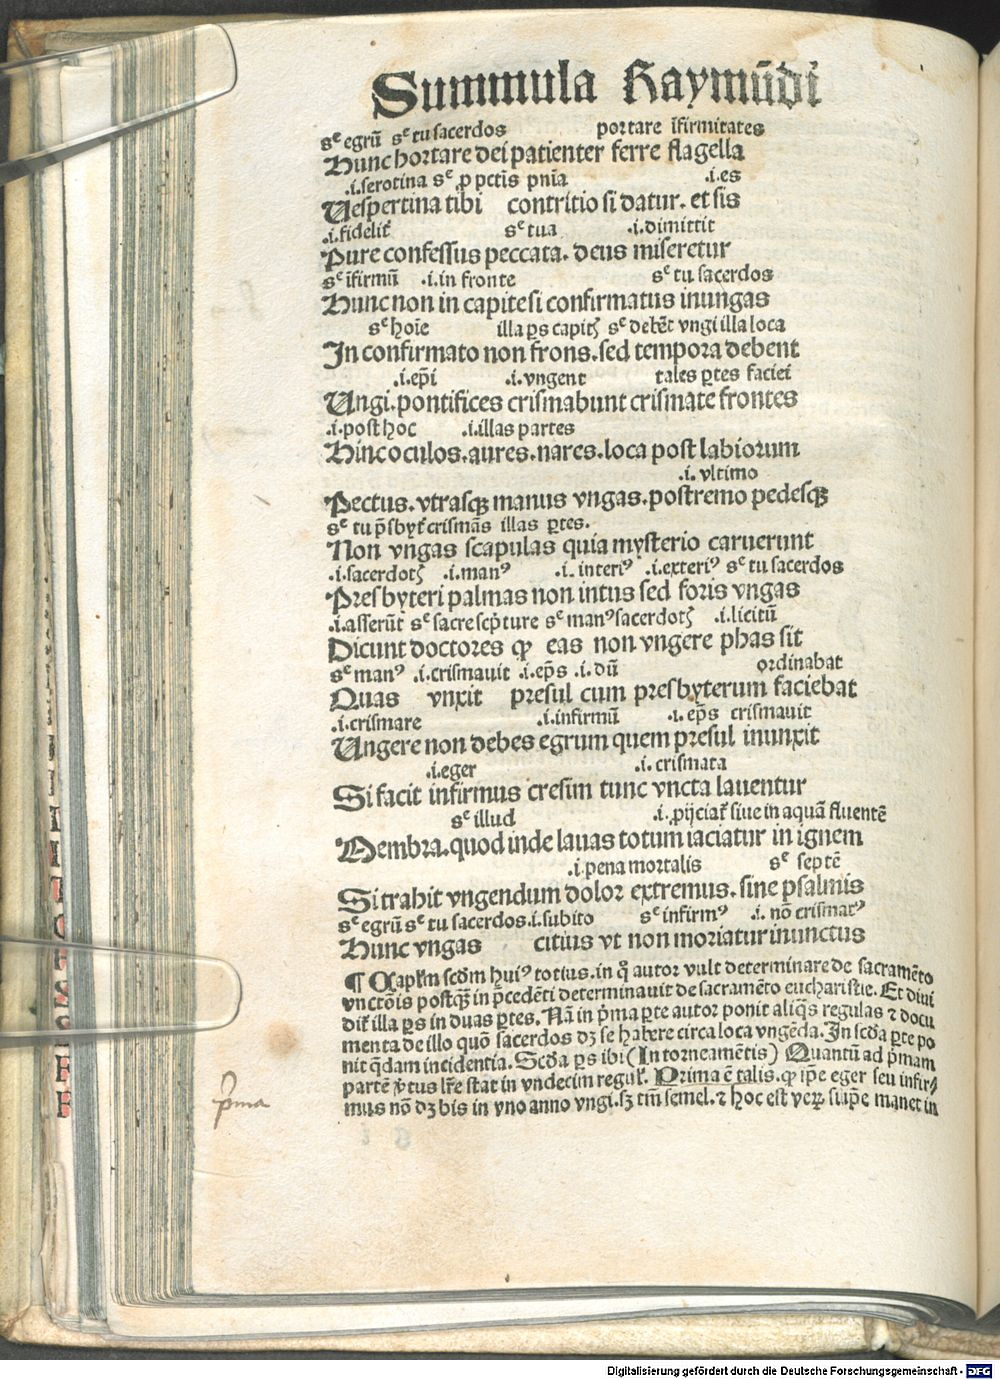 Summula Raymũdi
sᶜ egrũ sᶜ tu sacerdos portare ĩfirmitates
Hunc hortare dei patienter ferre flagella
.i.serotina sᶜ ꝓ pctĩs pñia .i.es
Uespertina tibi contritio si datur. et sis
.i.fidelit̃ sᶜ tua .i.dimittit
Pure confessus peccata. deus miseretur
sᶜ ĩfirmũ .i.in fronte sᶜ tu sacerdos
Hunc non in capite si confirmatus inungas
sᶜ hoĩe illa ꝑs capitꝭ sᶜ debẽt vngi illa loca
In confirmato non frons.sed tempora debent
.i.ep̃i .i.vngent tales ꝑtes faciei
Ungi.pontifices crismabunt crismate frontes
.i.post hoc .i.illas partes
Hinc oculos.aures.nares.loca post labiorum
.i. vltimo
Pectus.vtrasqꝫ manus vngas.postremo pedesqꝫ
sᶜ tu p̃sbyt̃ crismãs illas ꝑtes.
Non vngas scapulas quia mysterio caruerunt
.i.sacerdotꝭ .i.manꝰ .i. interiꝰ .i.exteriꝰ sᶜ tu sacerdos
Presbyteri palmas non intus sed foris vngas
.i.asserũt sᶜ sacre scp̃ture sᶜ manꝰ sacerdotꝭ .i.licitũ
Dicunt doctores ꝙ eas non vngere phas sit
sᶜ manꝰ .i.crismauit .i.ep̃s .i.dũ ordinabat
Quas vnxit presul cum presbyterum faciebat
.i.crismare .i.infirmũ .i. ep̃s crismauit
Ungere non debes egrum quem presul inunxit
.i.eger .i. crismata
Si facit infirmus cresim tunc vncta lauentur
sᶜ illud .i. ꝓijciat̃ siue in aquã fluentẽ
Membra.quod inde lauas totum iaciatur in ignem
.i.pena mortalis sᶜ septẽ
Si trahit vngendum dolor extremus.sine psalmis
sᶜ egrũ sᶜ tu sacerdos.i.subito sᶜ infirmꝰ .i. nõ crismatꝰ
Hunc vngas citius vt non moriatur inunctus
¶ Cap̃lm scd̃m huiꝰ totius.in q̊ autor vult determinare de sacramẽto
vnctõis postqꝫ̃ in p̃cedẽti determinauit de sacramẽto eucharistie. Et diui
dit̃ illa ꝑs in duas ꝑtes. Nã in p̃ma ꝑte autor ponit aliq̃s regulas ⁊ docu
menta de illo quõ sacerdos dꝫ se habere circa loca vngẽda. In scd̃a ꝑte po
nit q̃dam incidentia. Scd̃a ꝑs ibi (In torneamẽtis) Quantũ ad p̃mam
partẽ v̓tus lr̃e stat in vndecim regul̃. Prima ẽ talis. ꝙ ip̃e eger seu infir⸗
mus nõ dꝫ bis in vno anno vngi.sꝫ tm̃ semel.⁊ hoc est veꝝ si ip̃e manet in
p̃ma
Digitalisierung gefördert durch die Deutsche Forschungsgemeinschaft - DFG